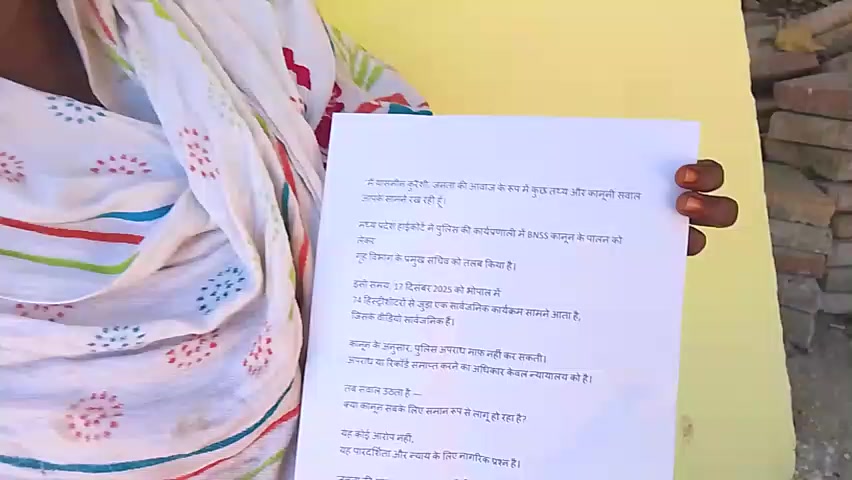 "मैं यासमीन कुरैशी, जनता की आवाज के रूप में कुछ तथ्य और कानूनी सवाल
आपके सामने रख रही हूँ।
मध्य प्रदेश हाईकोर्ट ने पुलिस की कार्यप्रणाली में BNSS कानून के पालन को
लेकर
गृह विभाग के प्रमुख सचिव को तलब किया है।
इसी समय, 17 दिसंबर 2025 को भोपाल में
74 हिस्ट्रीशीटरों से जुड़ा एक सार्वजनिक कार्यक्रम सामने आता है,
जिसके वीडियो सार्वजनिक हैं।
कानून के अनुसार, पुलिस अपराध माफ नहीं कर सकती।
अपराध या रिकॉर्ड समाप्त करने का अधिकार केवल न्यायालय को है।
तब सवाल उठता है —
क्या कानून सबके लिए समान रूप से लागू हो रहा है?
यह कोई आरोप नहीं,
यह पारदर्शिता और न्याय के लिए नागरिक प्रश्न है।